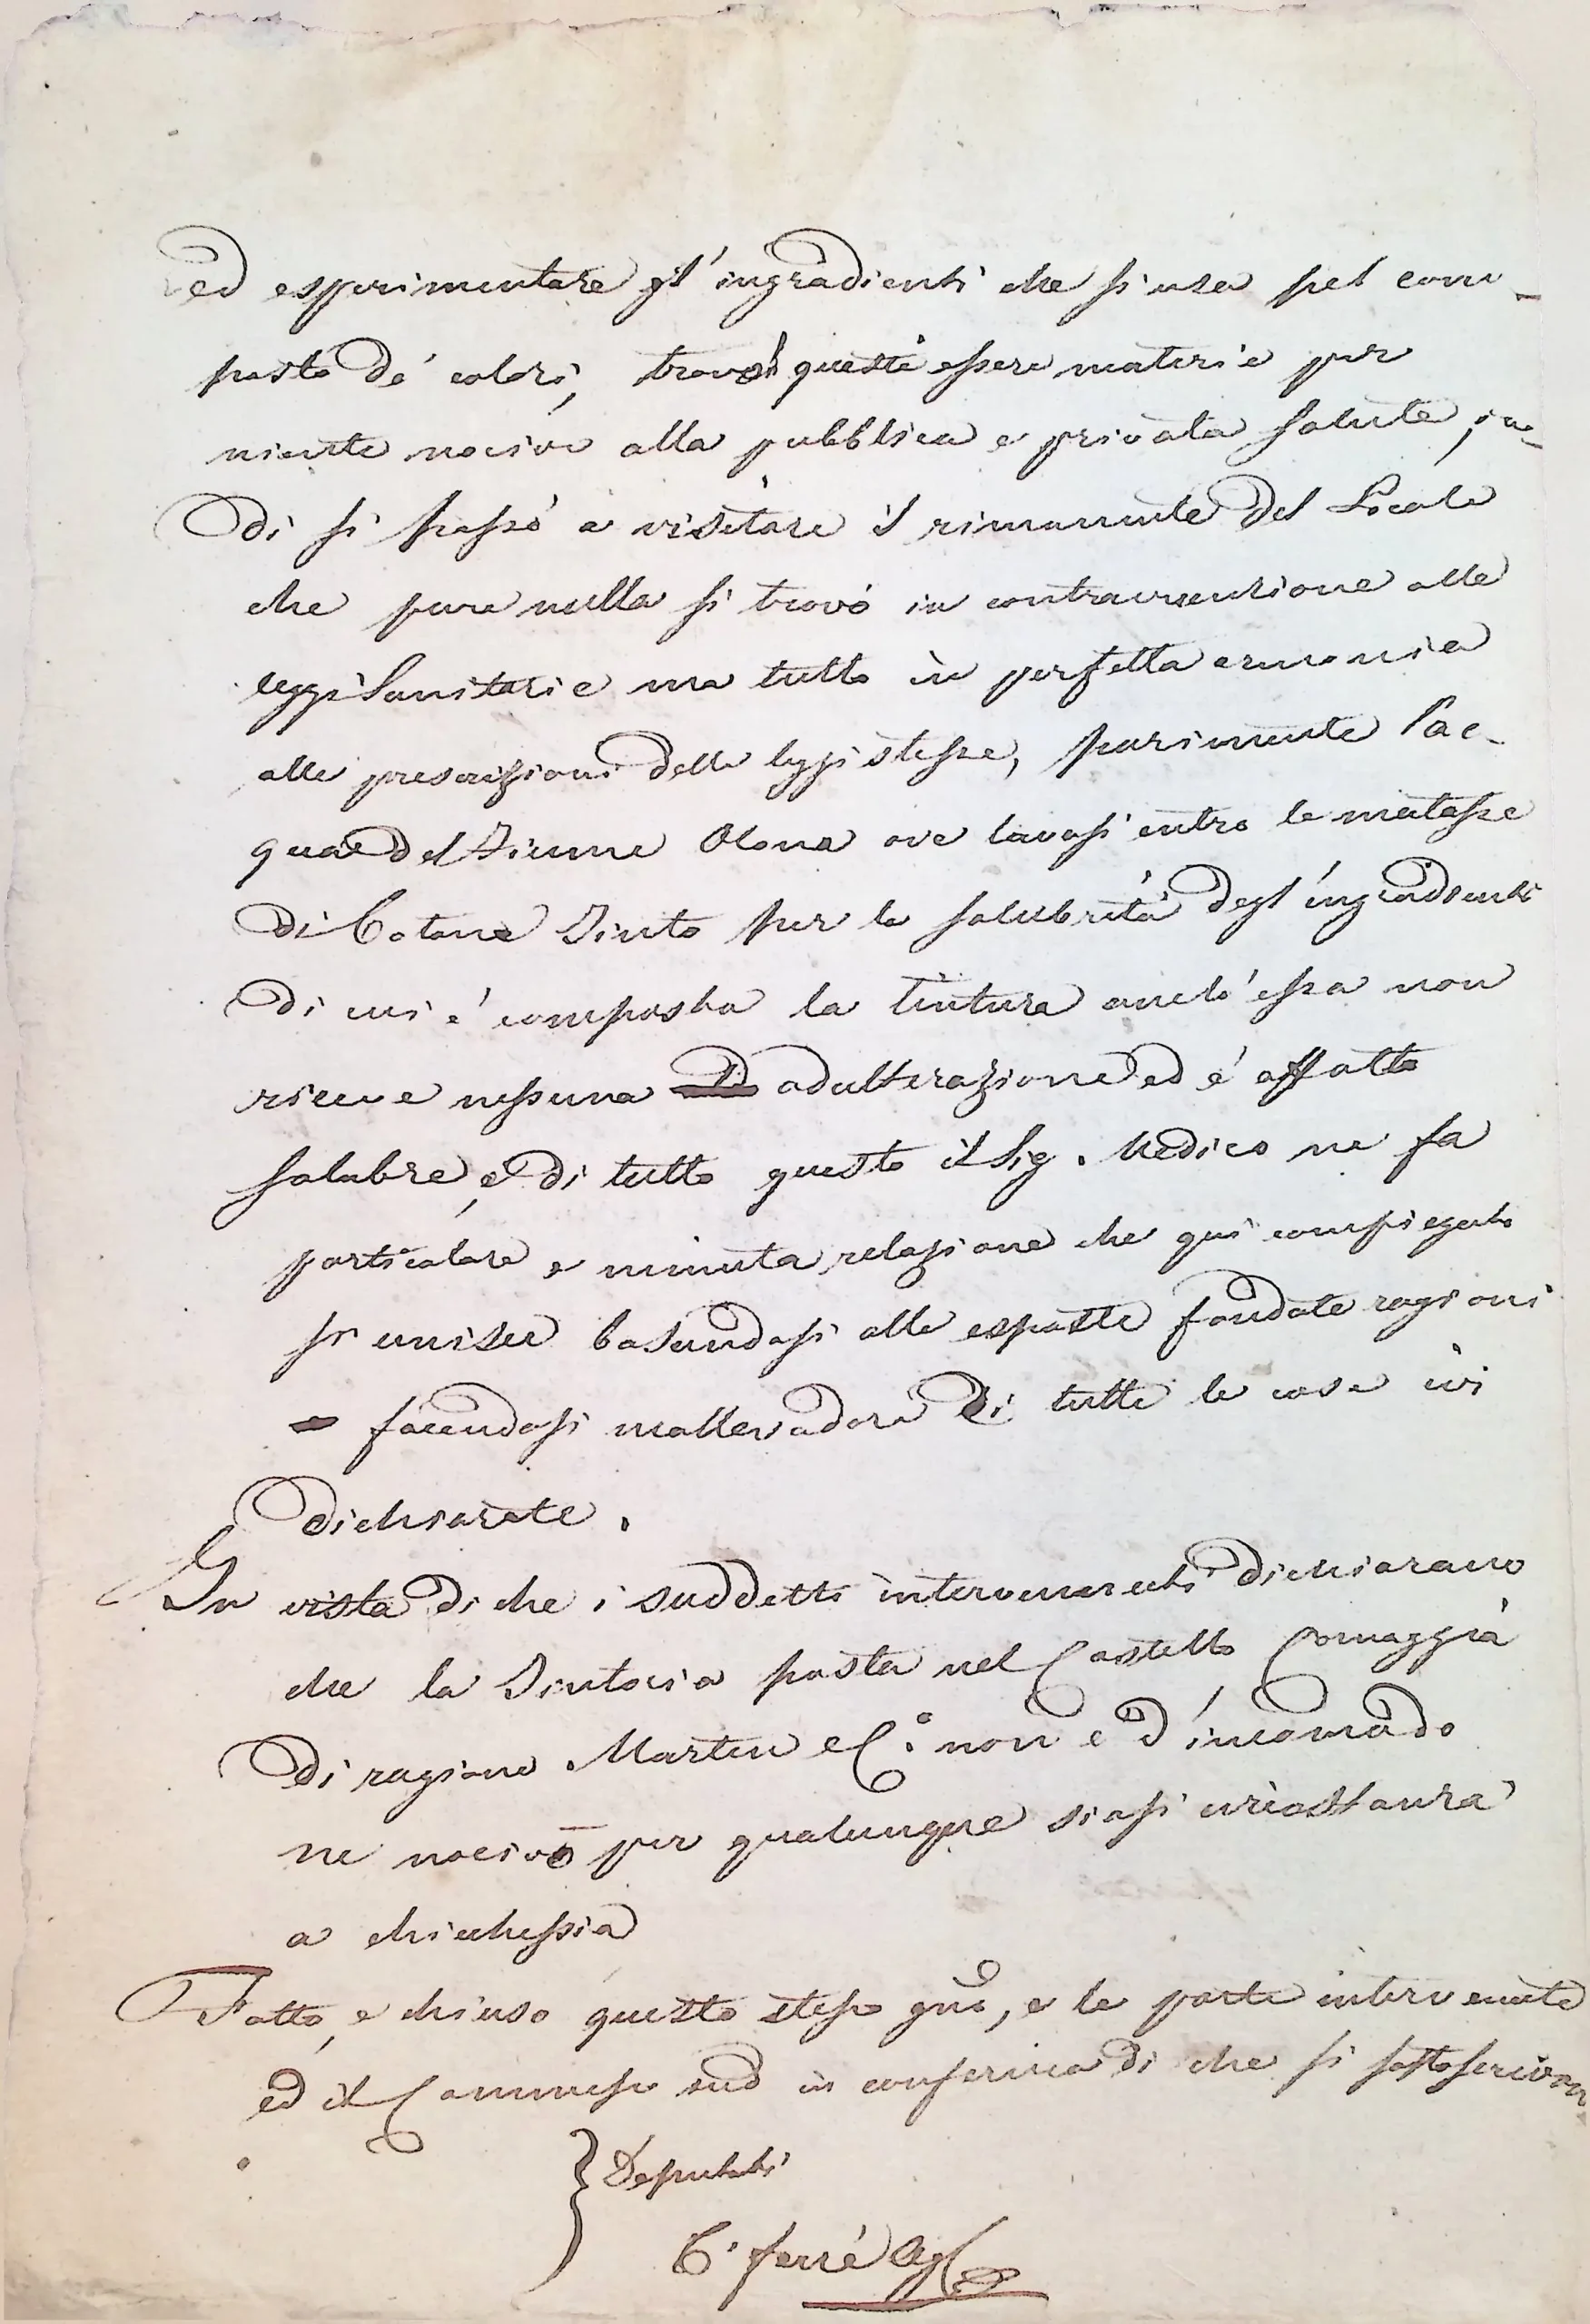 ed esperimentare gl'ingradienti che si usa pel com-
posto de' colori, trovò queste essere materie per
niente nocive alla pubblica e privata salute, in-
di si passò a visitare il rimanente del Locale
che pure nulla si trovò in contravenzione alle
leggi Sanitarie ma tutto in perfetta armonia
alle prescrizioni delle leggi stesse, parimente l'ac-
qua del Fiume Olona ove lavasi entro le matasse
di Cotone Tinto per la salubrità degl'ingradienti
di cui è composta la Tintura anch'essa non
riceve nessuna adulterazione ed è affatto
salubre, e di tutto questo il Sig. Medico ne fa
particolare e minuta relazione che qui compiegata
si unisce basandosi alle esposte fondate ragioni
facendosi mallevadore di tutte le cose ivi
dichiarate.
In vista di che i suddetti intervenienti dichiarano
che la Tintoria posta nel Castello Cornaggia
di ragione Martin e C.° non è d'incomodo
ne nocivo per qualunque siasi circostanza
a chichessia
Fatto, e chiuso questo stesso gno, e le parti intervenute
ed il Commesso sud in conferma di che si sottoscrivon
} Deputati
C. Ferrè Ag